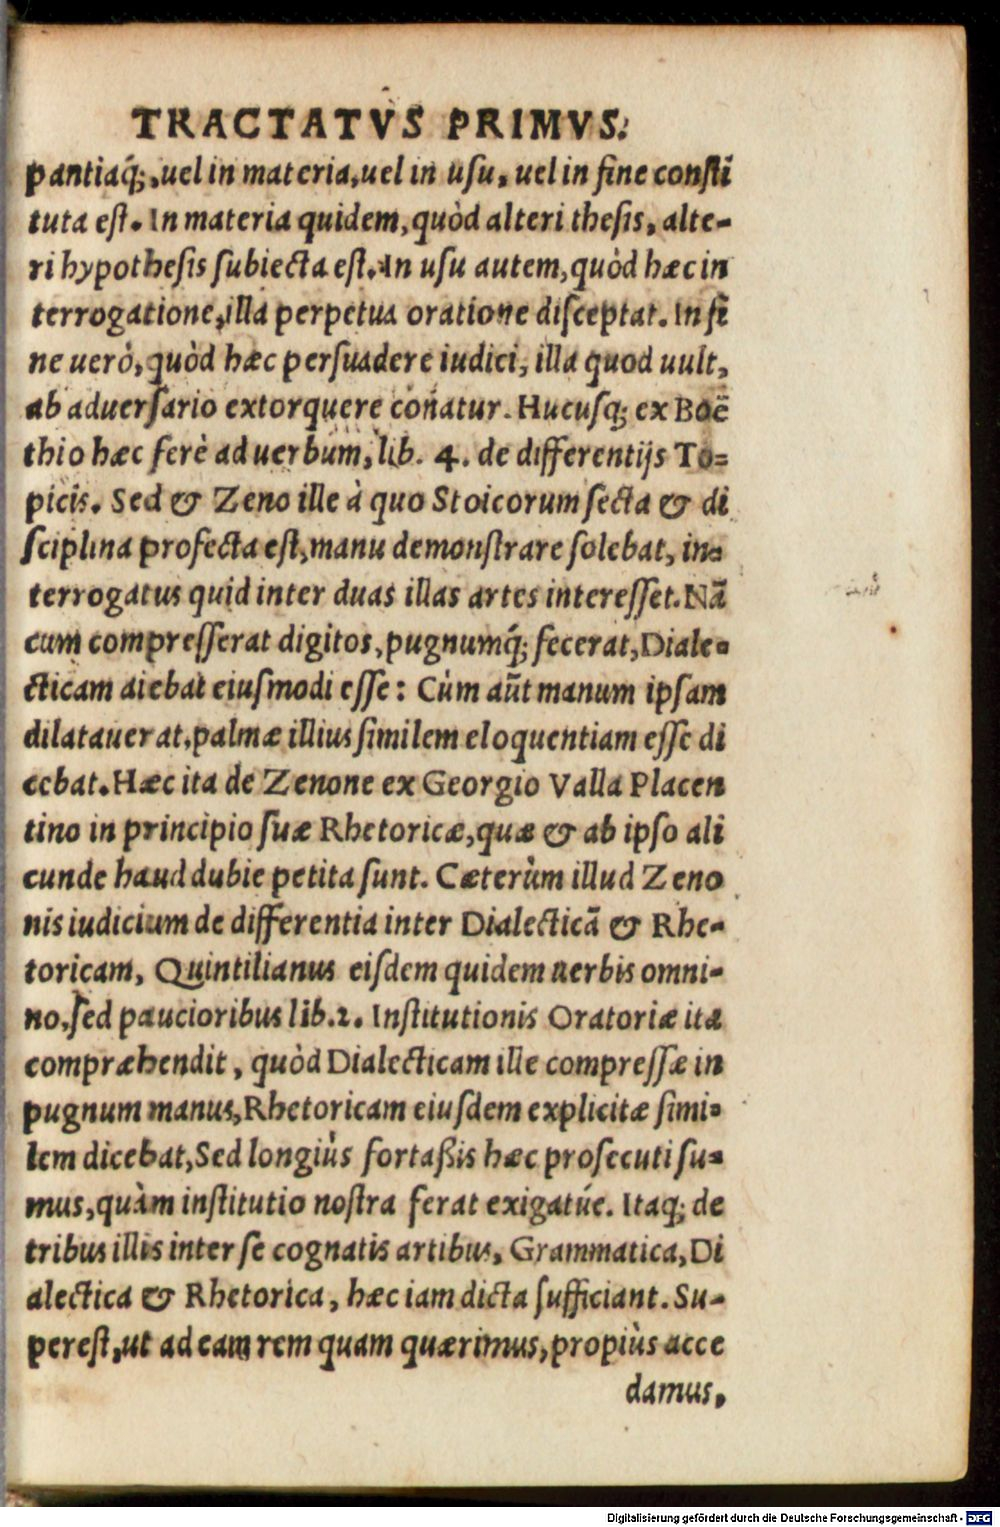 TRACTATVS PRIMVS.
pantiaq́;, uel in materia, uel in usu, uel in fine consti
tuta est. In materia quidem, quòd alteri thesis, alte-
ri hypothesis subiecta est. In usu autem, quòd hæc in
terrogatione, illa perpetua oratione disceptat. In fi
ne uerò, quòd hæc persuadere iudici, illa quod uult,
ab aduersario extorquere conatur. Hucusq; ex Boẽ
thio hæc ferè ad uerbum, lib. 4. de differentijs To=
picis. Sed & Zeno ille à quo Stoicorum secta & di
sciplina profecta est, manu demonstrare solebat, in=
terrogatus quid inter duas illas artes interesset. Nã
cum compresserat digitos, pugnumq́; fecerat, Diale=
cticam aiebat eiusmodi esse: Cùm aũt manum ipsam
dilatauerat, palmæ illius similem eloquentiam esse di
cebat. Hæc ita de Zenone ex Georgio Valla Placen
tino in principio suæ Rhetoricæ, quæ & ab ipso ali
cunde haud dubie petita sunt. Cæterùm illud Zeno
nis iudicium de differentia inter Dialecticã & Rhe-
toricam, Quintilianus eisdem quidem uerbis omni-
no, sed paucioribus lib. 2. Institutionis Oratoriæ ita
compræhendit, quòd Dialecticam ille compressæ in
pugnum manus, Rhetoricam eiusdem explicitæ simi=
lem dicebat, Sed longiùs fortaßis hæc prosecuti su=
mus, quàm institutio nostra ferat exigatúe. Itaq; de
tribus illis inter se cognatis artibus, Grammatica, Di
alectica & Rhetorica, hæc iam dicta sufficiant. Su-
perest, ut ad eam rem quam quærimus, propiùs acce
damus,
Digitalisierung gefördert durch die Deutsche Forschungsgemeinschaft - DFG